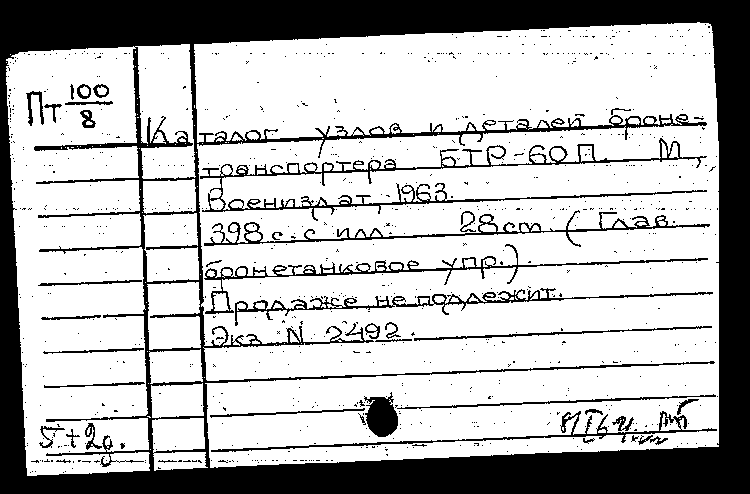 Пт 100/8
Каталог узлов и деталей броне-
транспортера БТР-60П. М.,
Воениздат, 1963.
398 с. с илл. 28 cm (Глав.
бронетанковое упр.)
Продаже не подлежит.
Экз N 2492.
5+2д.